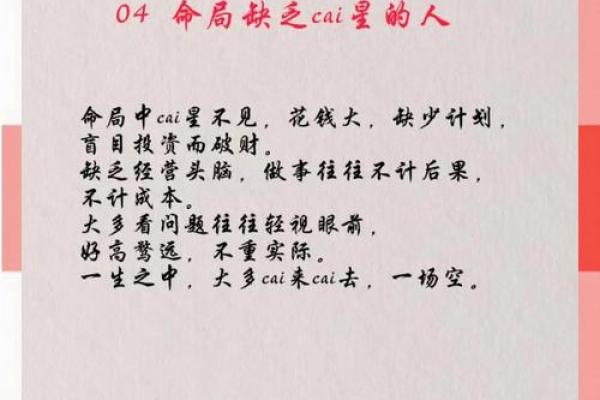 04 命局缺乏cai星的人
命局中cai星不见，花钱大，缺少计划，
盲目投资而破财。
缺乏经营头脑，做事往往不计后果，
不计成本。
大多看问题往往轻视眼前，
好高骛远，不重实际。
一生之中，大多cai来cai去，一场空。